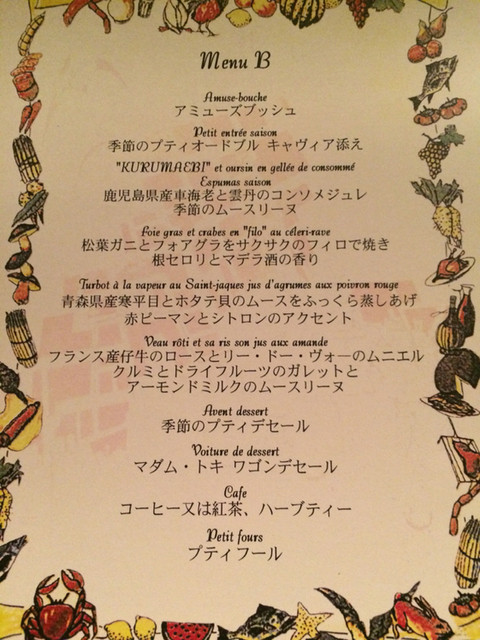 Menu B
Amuse-bouche
アミューズブッシュ
Petit entrée saison
季節のプティオードブル キャヴィア添え
"KURUMAEBI" et oursin en gellée de consommé
Espumas saison
鹿児島県産車海老と雲丹のコンソメジュレ
季節のムースリーヌ
Foie gras et crabes en "filo" au céleri-rave
松葉ガニとフォアグラをサクサクのフィロで焼き
根セロリとマデラ酒の香り
Turbot à la vapeur au Saint-jaques jus d'agrumes aux poivron rouge
青森県産寒平目とホタテ貝のムースをふっくら蒸しあげ
赤ピーマンとシトロンのアクセント
Veau rôti et sa ris son jus aux amande
フランス産仔牛のロースとリー・ドー・ヴォーのムニエル
クルミとドライフルーツのガレットと
アーモンドミルクのムースリーヌ
Avent dessert
季節のプティデセール
Voiture de dessert
マダム・トキ ワゴンデセール
Cafe
コーヒー又は紅茶、ハーブティー
Petit fours
プティフール